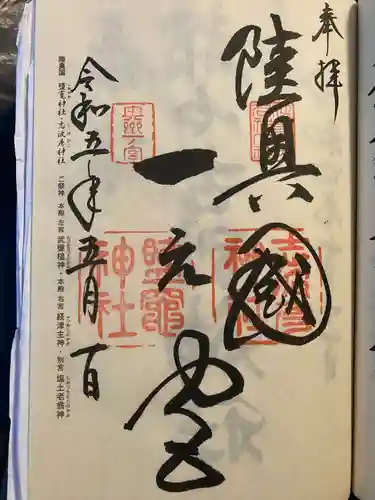 奉拝
陸奥國
一之宮
志波彦神社
鹽竈神社
令和五年五月一日
陸奥国 鹽竈神社・志波彦神社 ご祭神 本殿 左宮 武甕槌神・本殿 右宮 経津主神・別宮 塩土老翁神